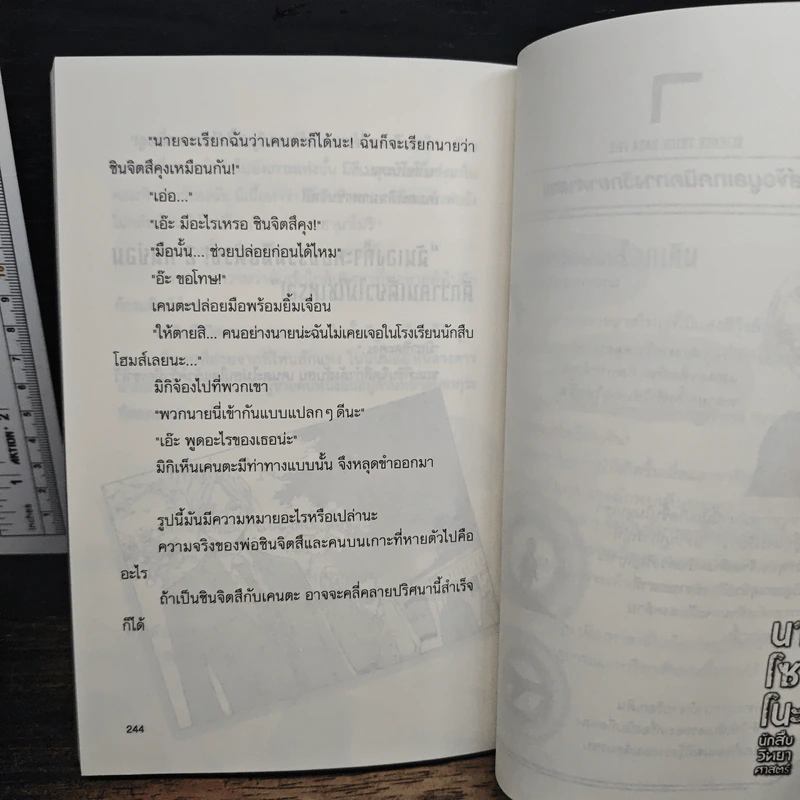 "นายจะเรียกฉันว่าเคนตะก็ได้นะ! ฉันก็จะเรียกนายว่า
ชินจิตสึคุงเหมือนกัน!"
"เอ่อ..."
"เอ๊ะ มีอะไรเหรอ ชินจิตสึคุง!"
"มือนั้น... ช่วยปล่อยก่อนได้ไหม"
"อ๊ะ ขอโทษ!"
เคนตะปล่อยมือพร้อมยิ้มเจื่อน
"ให้ตายสิ... คนอย่างนายน่ะฉันไม่เคยเจอในโรงเรียนนักสืบ
โฮมส์เลยนะ..."
มิกิจ้องไปที่พวกเขา
"พวกนายนี่เข้ากันแบบแปลก ๆ ดีนะ"
"เอ๊ะ พูดอะไรของเธอน่ะ"
มิกิเห็นเคนตะมีท่าทางแบบนั้น จึงหลุดขำออกมา
รูปนี้มันมีความหมายอะไรหรือเปล่านะ
ความจริงของพ่อชินจิตสึและคนบนเกาะที่หายตัวไปคือ
อะไร
ถ้าเป็นชินจิตสึกับเคนตะ อาจจะคลี่คลายปริศนานี้สำเร็จ
ก็ได้
244
โนะ
นักสืบ
วิทยา
ศาสตร์
AKTION
inches
1
2